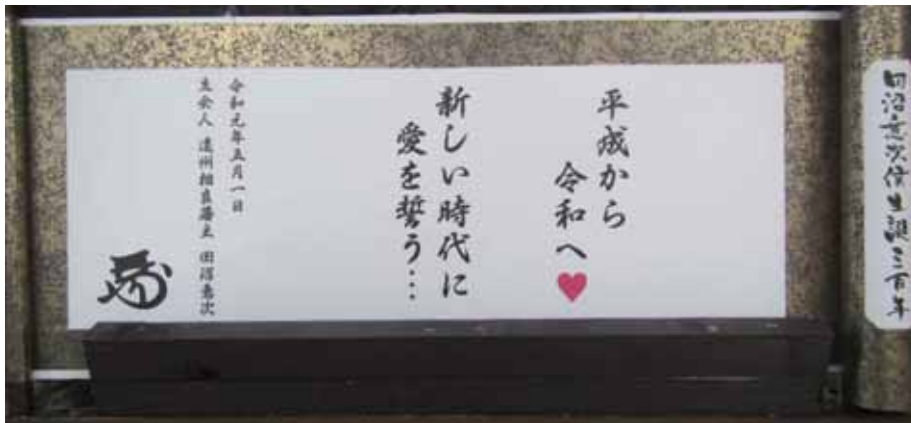 田沼意次侯生誕三百年
平成から
令和へ♥
新しい時代に
愛を誓う…
令和元年五月一日
立会人 遠州相良藩主 田沼意次